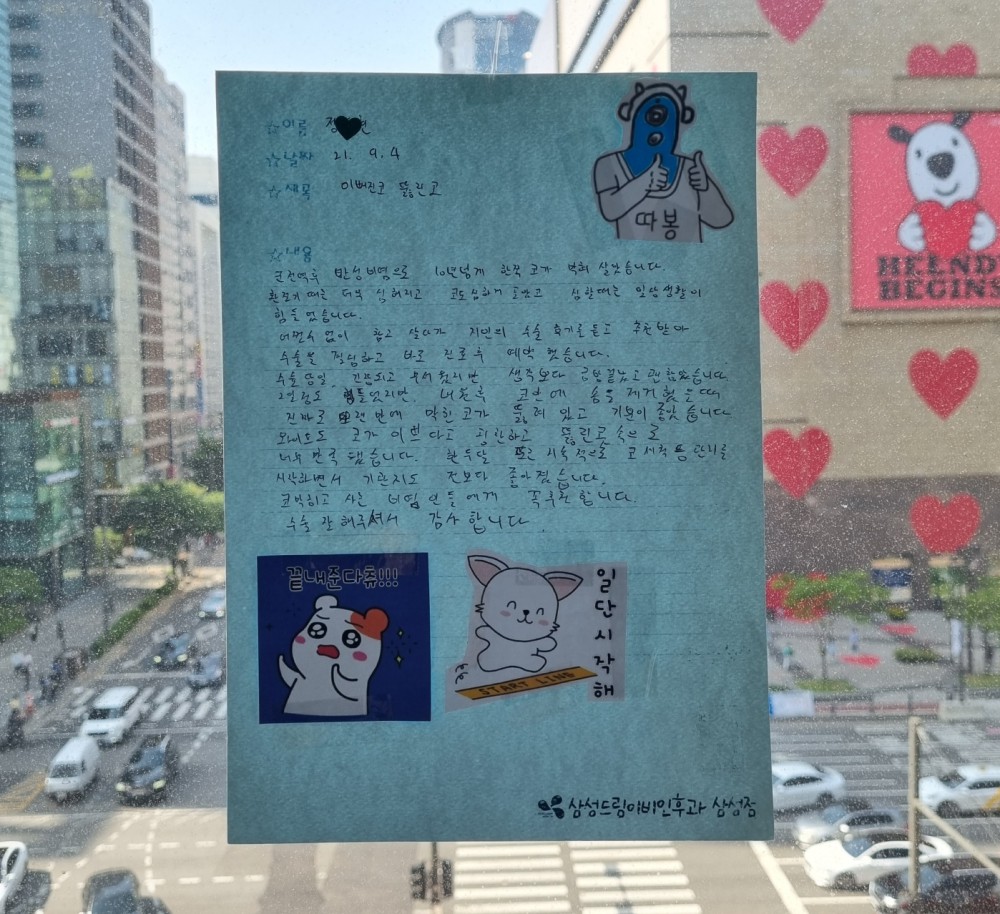 ☆이름 정♥현
☆날짜 21. 9. 4
☆제목 이뻐진코 뚫린코
따봉
☆내용
군전역후 만성비염으로 10년넘게 한쪽 코가 막혀 살았습니다.
환절기 때는 더욱 심해지고 코도 심하게 골았고 심할때는 일상생활이
힘들었습니다.
어쩔수 없이 참고 살다가 지인의 수술 후기를 듣고 추천받아
수술을 결심하고 바로 진료후 예약 했습니다.
수술당일 긴장되고 무서웠지만 생각보다 금방끝났고 괜찮았습니다
2일정도 힘들었지만 내원후 코안에 솜을 제거했는데
진짜로 몇년만에 막힌코가 뚫려 있고 기분이 좋았습니다
와이프도 코가 이쁘다고 칭찬하고 뚫린콧속으로
너무 만족했습니다. 한두달 지속적으로 코세척등 관리를
시작하면서 기관지도 전보다 좋아졌습니다.
코막히고 사는 비염인들에게 적극추천합니다.
수술 잘해주셔서 감사합니다
끝내준다츄!!!
일단시작해
START LINE
삼성드림이비인후과 삼성점
BEGINS